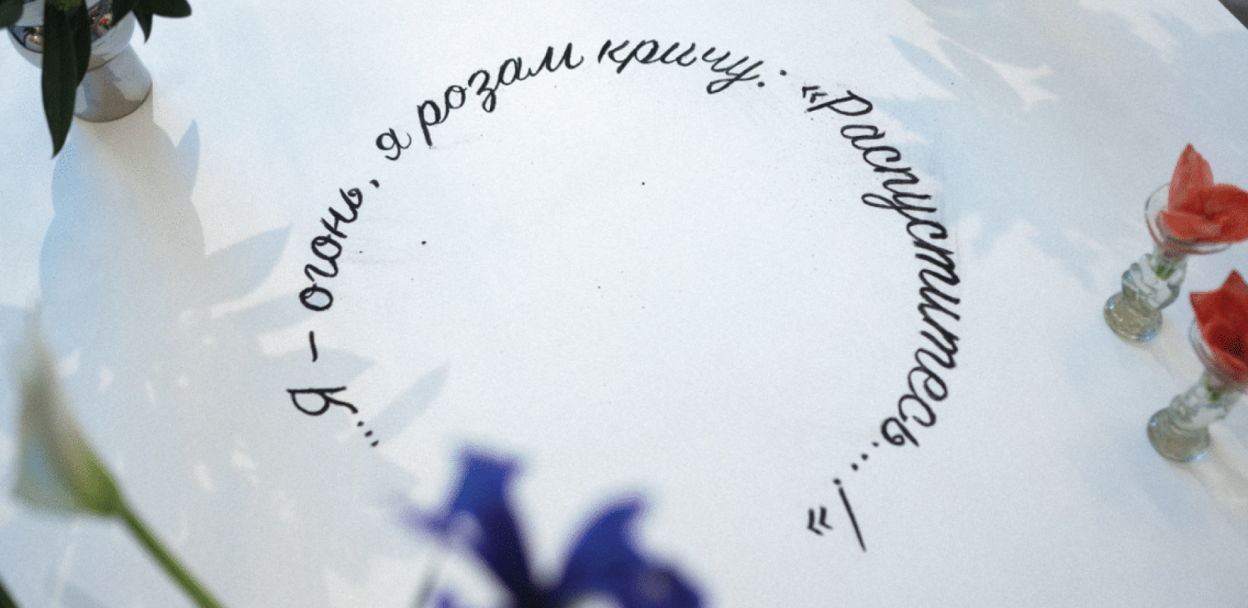 ...Я – огонь, я розам кричу: «Распуститесь.... / »